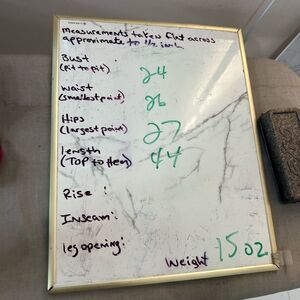 measurements taken flat across
approximate to 1/2 inch
Bust :
(pit to pit) 24
waist
(smallest point) 26
Hips
(largest point) 27
length
(TOP to Hem) 44
Rise :
Inseam :
leg opening :
Weight 15 oz